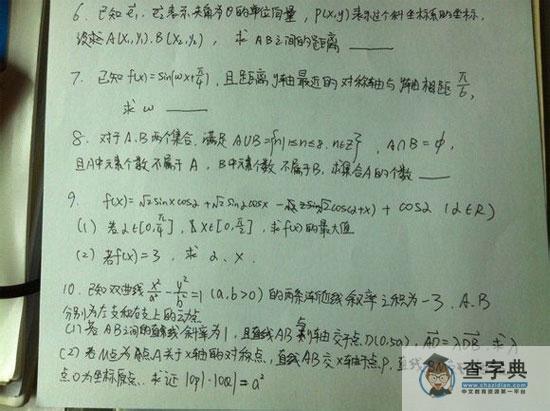 6. 已知 e₁, e₂ 表示夹角为θ的单位向量, P(x,y)表示这个斜坐标系的坐标,
设 A(X₁,Y₁).B(X₂,Y₂), 求 AB之间的距离
7. 已知 f(x)=sin(ωx+π/4), 且距离y轴最近的对称轴与y轴相距 π/6,
求 ω
8. 对于A.B两个集合, 满足 A∪B={n|1≤n≤8, n∈Z}, A∩B=φ,
且A中元素个数不属于A, B中元素个数不属于B, 求集合A的个数
9. f(x)=√2sinxcosα+√2sinαcosx - cos(α+x) + cosα (α∈R)
(1) 若 α∈[0,π/4], 且x∈[0,π/2], 求f(x)的最大值
(2) 若f(x)=3, 求 α、x.
10. 已知双曲线 x²/a² - y²/b² =1 (a,b>0) 的两条渐近线斜率之积为-3. A.B
分别为左支和右支上的动点
(1) 若AB之间的直线斜率为1, 且直线AB与y轴交于点D(0,5a), AD=λDB 求λ
(2) 若M点为A点关于x轴的对称点, 直线AB交x轴于点P, 直线
点O为坐标原点. 求证 |OP|·|OQ|=a²
查字典
www.chazidian.com